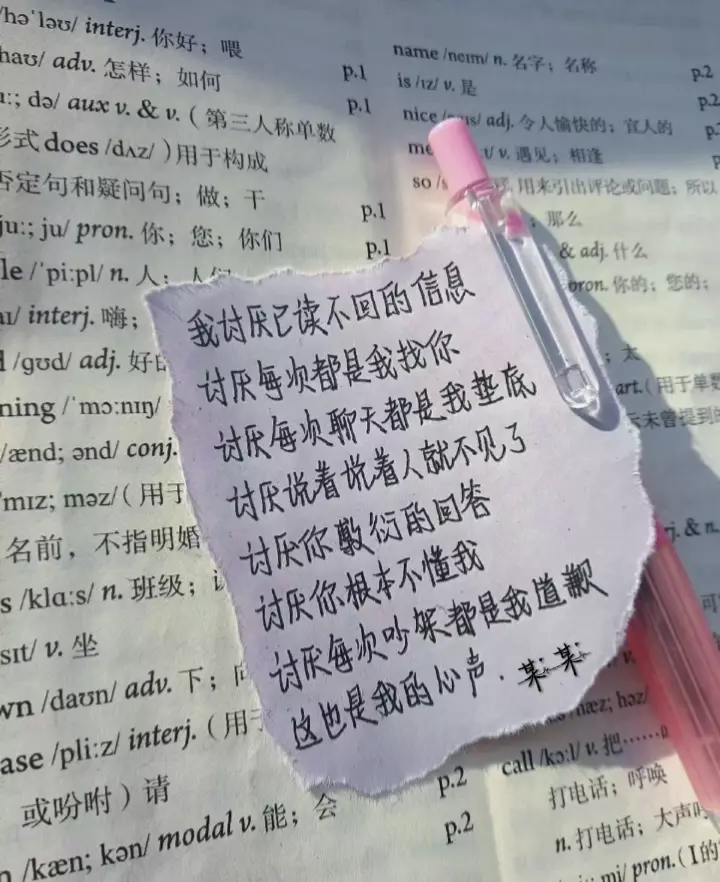 /həˈləʊ/ interj. 你好；喂
haʊ/ adv. 怎样；如何 p.1
ː; də/ aux v. & v.（第三人称单数 p.1
形式 does /dʌz/ ) 用于构成
否定句和疑问句；做；干
juː; ju/ pron. 你；您；你们 p.1
le /ˈpiːpl/ n. 人； p.1
aɪ/ interj. 嗨；
/ɡʊd/ adj.
ning /ˈmɔːnɪŋ/
/ænd; ənd/ conj.
mɪz; məz/（用于
名前，不指明婚
s /klɑːs/ n. 班级；
sɪt/ v. 坐
wn /daʊn/ adv. 下；
ase /pliːz/ interj.（用
或吩咐）请
n /kæn; kən/ modal v. 能；会 p.2
p.2
name /neɪm/ n. 名字；名称 p.2
is /ɪz/ v. 是 p.2
nice adj. 令人愉快的；宜人的
v. 遇见；相逢
so 用来引出评论或问题；所以
那么
& adj. 什么
pron. 你的；您的；
太
art.（用于单数
未曾提到的
我讨厌已读不回的信息
讨厌每次都是我找你
讨厌每次聊天都是我垫底
讨厌说着说着人就不见了
讨厌你敷衍的回答
讨厌你根本不懂我
讨厌每次吵架都是我道歉
这也是我的心声.某某
j. & n.
hæz; həz/
call /kɔːl/ v. 把……
打电话；呼唤
n. 打电话；大声
mi/ pron.（I的